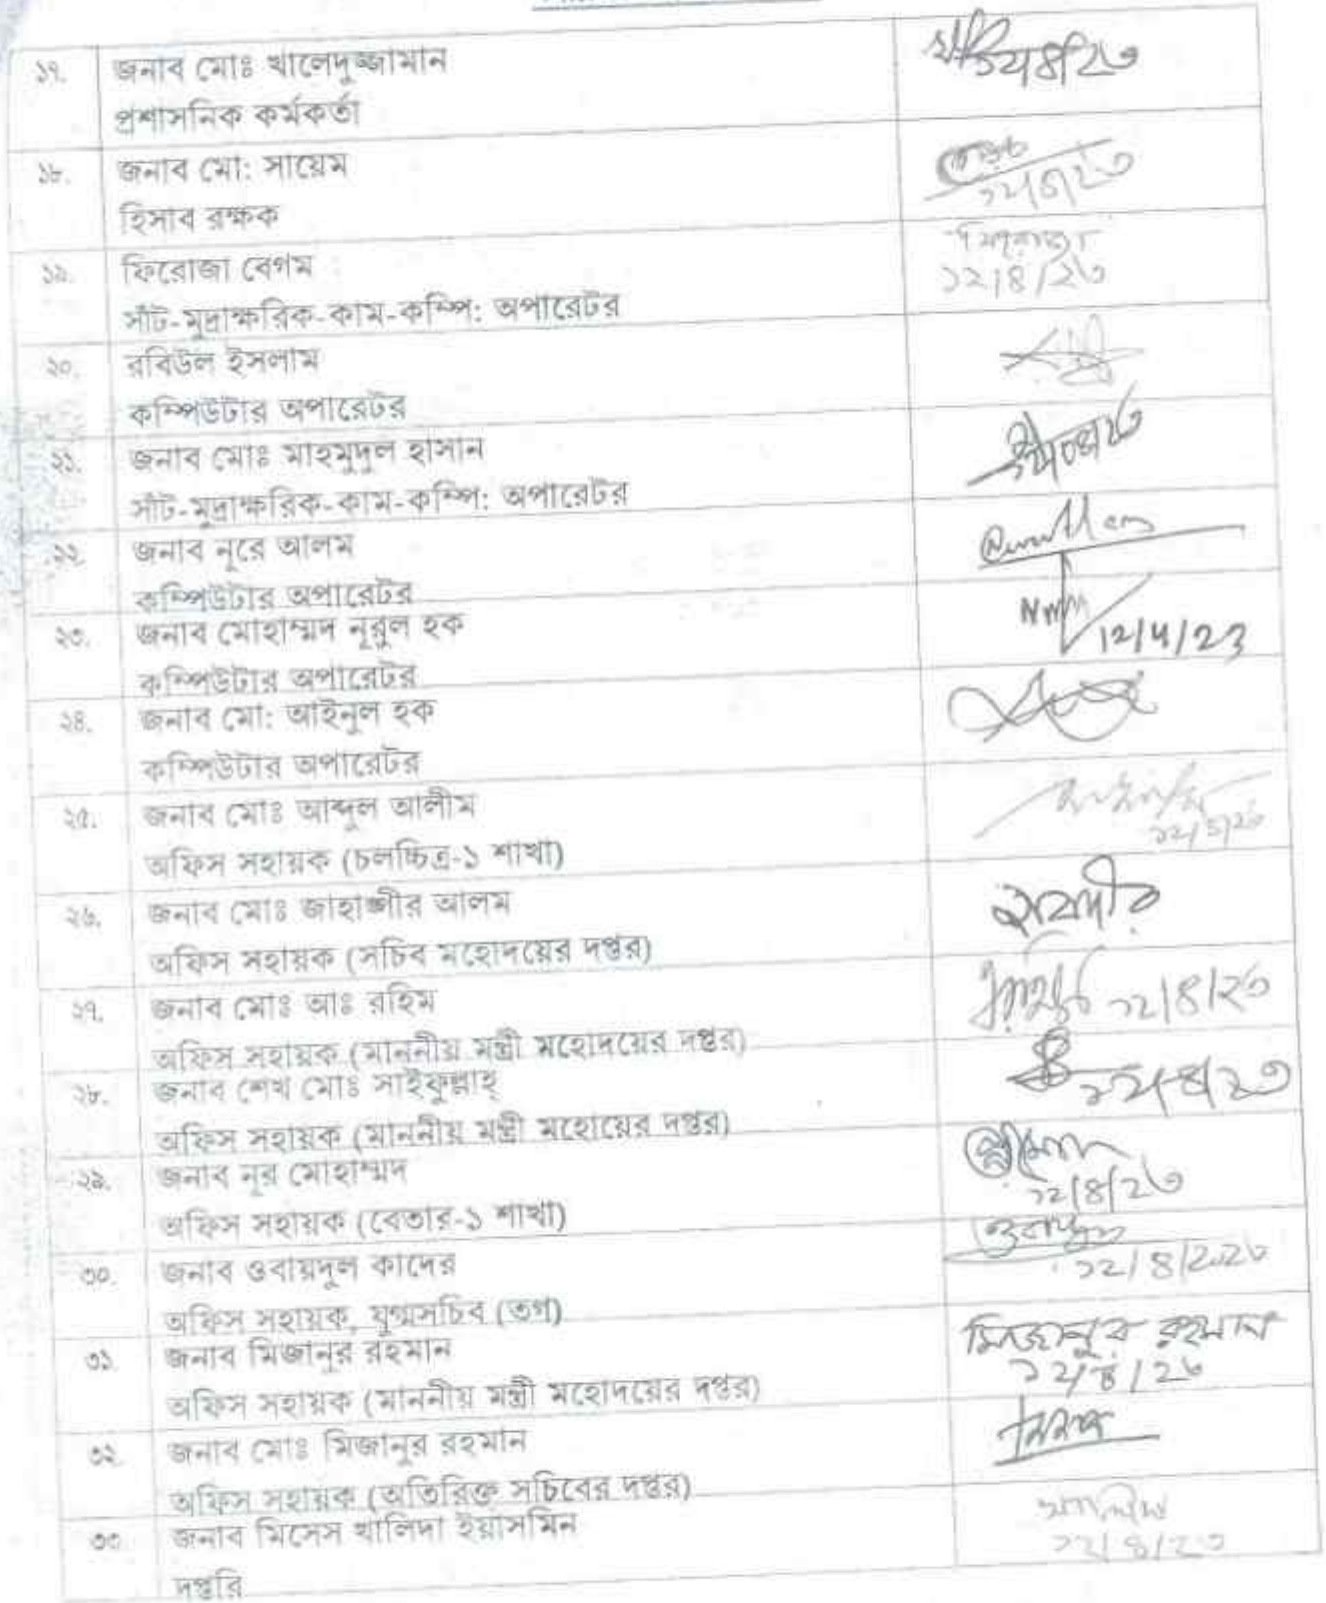 ১৭. জনাব মোঃ খালেদুজ্জামান
প্রশাসনিক কর্মকর্তা
১২/৪/২৩
১৮. জনাব মো: সায়েম
হিসাব রক্ষক
১২/৪/২৩
১৯. ফিরোজা বেগম
সাঁট-মুদ্রাক্ষরিক-কাম-কম্পি: অপারেটর
ফিরোজা
১২/৪/২৩
২০. রবিউল ইসলাম
কম্পিউটার অপারেটর
২১. জনাব মোঃ মাহমুদুল হাসান
সাঁট-মুদ্রাক্ষরিক-কাম-কম্পি: অপারেটর
২২. জনাব নূরে আলম
কম্পিউটার অপারেটর
২৩. জনাব মোহাম্মদ নূরুল হক
কম্পিউটার অপারেটর
12/4/23
২৪. জনাব মো: আইনুল হক
কম্পিউটার অপারেটর
২৫. জনাব মোঃ আব্দুল আলীম
অফিস সহায়ক (চলচ্চিত্র-১ শাখা)
১২/৪/২৩
২৬. জনাব মোঃ জাহাঙ্গীর আলম
অফিস সহায়ক (সচিব মহোদয়ের দপ্তর)
২৭. জনাব মোঃ আঃ রহিম
অফিস সহায়ক (মাননীয় মন্ত্রী মহোদয়ের দপ্তর)
১২/৪/২৩
২৮. জনাব শেখ মোঃ সাইফুল্লাহ্
অফিস সহায়ক (মাননীয় মন্ত্রী মহোয়ের দপ্তর)
১২/৪/২৩
২৯. জনাব নূর মোহাম্মদ
অফিস সহায়ক (বেতার-১ শাখা)
১২/৪/২৩
৩০. জনাব ওবায়দুল কাদের
অফিস সহায়ক, যুগ্মসচিব (তপ্র)
১২/৪/২০২৩
৩১. জনাব মিজানুর রহমান
অফিস সহায়ক (মাননীয় মন্ত্রী মহোদয়ের দপ্তর)
মিজানুর রহমান
১২/৪/২৩
৩২. জনাব মোঃ মিজানুর রহমান
অফিস সহায়ক (অতিরিক্ত সচিবের দপ্তর)
৩৩. জনাব মিসেস খালিদা ইয়াসমিন
দপ্তরি
১২/৪/২৩